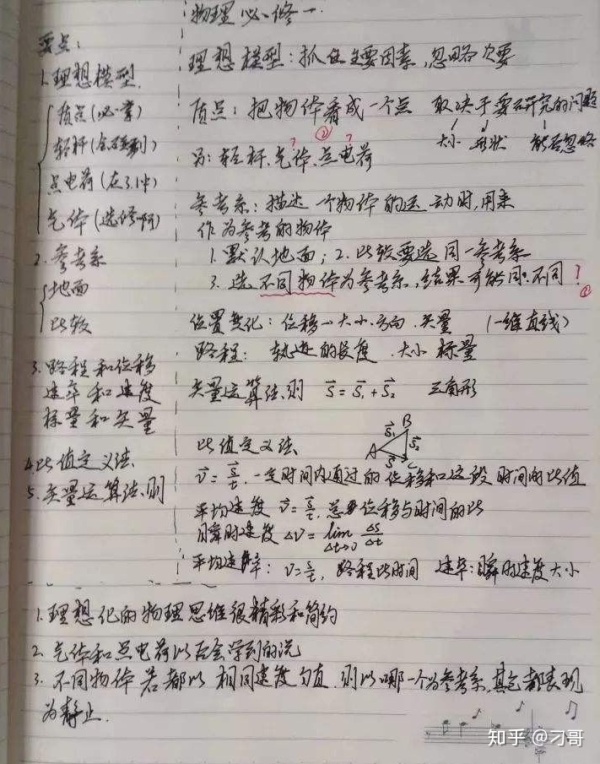 物理必修一
要点:
1.理想模型
质点(必一章)
轻杆(会碰到)
点电荷(在3.1中)
气体(选修啊)
2.参考系
地面
比较
3.路程和位移
速率和速度
标量和矢量
4.比值定义法
5.矢量运算法则
理想模型:抓住主要因素,忽略次要
质点:把物体看成一个点 取决于要研究的问题
大小 形状 能否忽略
②
为:轻杆、气体、点电荷
? ?
参考系:描述一个物体的运动时,用来
作为参考的物体
1.默认地面;2.比较要选同一参考系
3.选不同物体为参考系,结果可能同、不同?
①
位置变化:位移→大小、方向、矢量 (一维直线)
路程:轨迹的长度、大小 标量
矢量运算法则 S=S₁+S₂ 三角形
A B C S₁ S₂ S
比值定义法
v=s/t,一定时间内通过的位移和这段时间的比值
平均速度 v=s/t,总位移与时间的比
瞬时速度 Δv=lim Δt→0 Δs/Δt
平均速率:v=s/t,路程比时间 速率:瞬时速度大小
1.理想化的物理思维很精彩和简约
2.气体和点电荷以后会学到的说
3.不同物体若都以相同速度匀直,则以哪一个为参考系,其它都表现
为静止.
知乎 @刁哥